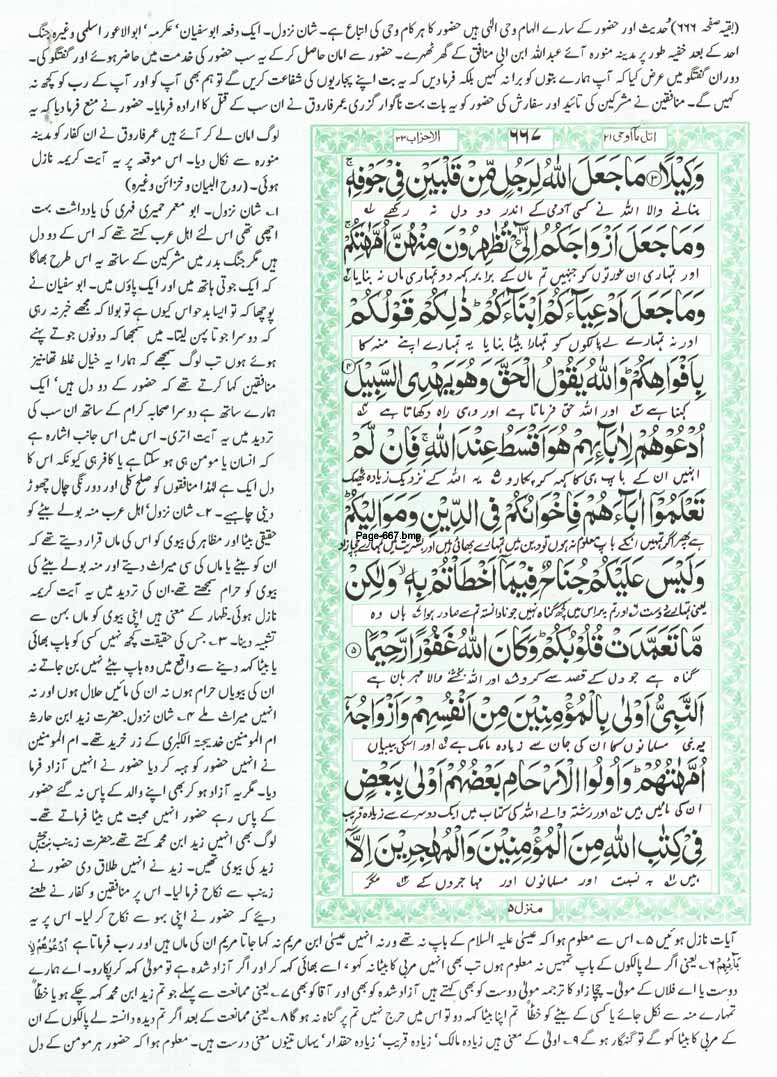 (بقیہ صفحہ ۶۶۶) حدیث اور حضور کے سارے الہام وحی الٰہی ہیں حضور کا ہر کام وحی کی اتباع ہے۔ شان نزول۔ ایک دفعہ ابوسفیان' عکرمہ' ابوالاعور اسلمی وغیرہ جنگ
احد کے بعد خفیہ طور پر مدینہ منورہ آئے عبداللہ ابن ابی منافق کے گھر ٹھہرے۔ حضور سے امان حاصل کر کے یہ سب حضور کی خدمت میں حاضر ہوئے اور گفتگو کی۔
دوران گفتگو میں عرض کیا کہ آپ ہمارے بتوں کو برا نہ کہیں بلکہ فرما دیں کہ یہ بت اپنے پجاریوں کی شفاعت کریں گے تو ہم بھی آپ کو اور آپ کے رب کو کچھ نہ
کہیں گے۔ منافقین نے مشرکین کی تائید اور سفارش کی حضور کو یہ بات بہت ناگوار گزری عمر فاروق نے ان سب کے قتل کا ارادہ فرمایا۔ حضور نے منع فرما دیا کہ یہ
لوگ امان لے کر آئے ہیں عمر فاروق نے ان کفار کو مدینہ
منورہ سے نکال دیا۔ اس موقعہ پر یہ آیت کریمہ نازل
ہوئی۔ (روح البیان و خزائن وغیرہ)
۱؎ شان نزول۔ ابو معمر حمیری فہری کی یادداشت بہت
اچھی تھی اس لئے اہل عرب کہتے تھے کہ اس کے دو دل
ہیں مگر جنگ بدر میں مشرکین کے ساتھ یہ اس طرح بھاگا
کہ ایک جوتی ہاتھ میں اور ایک پاؤں میں۔ ابو سفیان نے
پوچھا کہ تو ایسا بدحواس کیوں ہے تو بولا کہ مجھے خبر نہ رہی
کہ دوسرا جوتا پہن لیتا۔ میں سمجھا کہ دونوں جوتے پہنے
ہوئے ہوں تب لوگ سمجھے کہ ہمارا یہ خیال غلط تھا نیز
منافقین کہا کرتے تھے کہ حضور کے دو دل ہیں' ایک
ہمارے ساتھ ہے دوسرا صحابہ کرام کے ساتھ ان سب کی
تردید میں یہ آیت اتری۔ اس میں اس جانب اشارہ ہے
کہ انسان یا مومن ہی ہو سکتا ہے یا کافر ہی کیونکہ اس کا
دل ایک ہے لہٰذا منافقوں کو صلح کلی اور دورنگی چال چھوڑ
دینی چاہیے۔ ۲؎ شان نزول' اہل عرب منہ بولے بیٹے کو
حقیقی بیٹا اور مظاہر کی بیوی کو اس کی ماں قرار دیتے تھے کہ
ان کو بیٹے یا ماں کی سی میراث دیتے اور منہ بولے بیٹے کی
بیوی کو حرام سمجھتے تھے۔ ان کی تردید میں یہ آیت کریمہ
نازل ہوئی۔ ظہار کے معنی ہیں اپنی بیوی کو ماں بہن سے
تشبیہ دینا۔ ۳؎ جس کی حقیقت کچھ نہیں کسی کو باپ بھائی
یا بیٹا کہہ دینے سے واقع میں وہ باپ بیٹے نہیں بن جاتے نہ
ان کی بیویاں حرام ہوں نہ ان کی مائیں حلال ہوں اور نہ
انہیں میراث ملے ۴؎ شان نزول۔ حضرت زید ابن حارثہ
ام المومنین خدیجۃ الکبریٰ کے زر خرید تھے۔ ام المومنین
نے انہیں حضور کو ہبہ کر دیا حضور نے انہیں آزاد فرما
دیا۔ مگر یہ آزاد ہو کر بھی اپنے والد کے پاس نہ گئے حضور
کے پاس رہے حضور انہیں محبت میں بیٹا فرماتے تھے۔
لوگ بھی انہیں زید ابن محمد کہتے تھے حضرت زینب بنت جحش
زید کی بیوی تھیں۔ زید نے انہیں طلاق دی حضور نے
زینب سے نکاح فرما لیا۔ اس پر منافقین و کفار نے طعنے
دیئے کہ حضور نے اپنی بہو سے نکاح کر لیا۔ اس پر یہ
اتل ما اوحی ۲۱
۶۶۷
الاحزاب ۳۳
وَكِيْلًا ۳ مَا جَعَلَ اللّٰهُ لِرَجُلٍ مِّنْ قَلْبَيْنِ فِيْ جَوْفِهٖ ۚ
بنانے والا اللہ نے کسی آدمی کے اندر دو دل نہ رکھے
وَمَا جَعَلَ اَزْوَاجَكُمُ الّٰٓئِيْ تُظٰهِرُوْنَ مِنْهُنَّ اُمَّهٰتِكُمْ ۚ
اور تمہاری ان عورتوں کو جنہیں تم ماں کے برابر کہہ دو تمہاری ماں نہ بنایا
وَمَا جَعَلَ اَدْعِيَآءَكُمْ اَبْنَآءَكُمْ ؕ ذٰلِكُمْ قَوْلُكُمْ
اور نہ تمہارے لے پالکوں کو تمہارا بیٹا بنایا یہ تمہارے اپنے منہ کا
بِاَفْوَاهِكُمْ ؕ وَاللّٰهُ يَقُوْلُ الْحَقَّ وَهُوَ يَهْدِي السَّبِيْلَ ۴
کہنا ہے اور اللہ حق فرماتا ہے اور وہی راہ دکھاتا ہے
اُدْعُوْهُمْ لِاٰبَآئِهِمْ هُوَ اَقْسَطُ عِنْدَ اللّٰهِ ۚ فَاِنْ لَّمْ
انہیں ان کے باپ ہی کا کہہ کر پکارو یہ اللہ کے نزدیک زیادہ ٹھیک
تَعْلَمُوْۤا اٰبَآءَهُمْ فَاِخْوَانُكُمْ فِي الدِّيْنِ وَمَوَالِيْكُمْ ؕ
ہے پھر اگر تمہیں انکے باپ معلوم نہ ہوں تو دین میں تمہارے بھائی ہیں اور بشریت میں تمہارے چچا زاد
Page-667.bmp
وَلَيْسَ عَلَيْكُمْ جُنَاحٌ فِيْمَاۤ اَخْطَاْتُمْ بِهٖ ۙ وَلٰكِنْ
یعنی تمہارے دوست اور تم پر اس میں کچھ گناہ نہیں جو نادانستہ تم سے صادر ہوا ہاں وہ
مَّا تَعَمَّدَتْ قُلُوْبُكُمْ ؕ وَكَانَ اللّٰهُ غَفُوْرًا رَّحِيْمًا ۵
گناہ ہے جو دل کے قصد سے کرو اور اللہ بخشنے والا مہربان ہے
اَلنَّبِيُّ اَوْلٰى بِالْمُؤْمِنِيْنَ مِنْ اَنْفُسِهِمْ وَاَزْوَاجُهٗۤ
یہ نبی مسلمانوں کا ان کی جان سے زیادہ مالک ہے اور اسکی بیبیاں
اُمَّهٰتُهُمْ ؕ وَاُولُوا الْاَرْحَامِ بَعْضُهُمْ اَوْلٰى بِبَعْضٍ
ان کی مائیں ہیں اور رشتہ والے اللہ کی کتاب میں ایک دوسرے سے زیادہ قریب
فِيْ كِتٰبِ اللّٰهِ مِنَ الْمُؤْمِنِيْنَ وَالْمُهٰجِرِيْنَ اِلَّاۤ
ہیں بہ نسبت اور مسلمانوں اور مہاجروں کے مگر
منزل ۵
آیات نازل ہوئیں ۵؎ اس سے معلوم ہوا کہ عیسیٰ علیہ السلام کے باپ نہ تھے ورنہ انہیں عیسیٰ ابن مریم نہ کہا جاتا مریم ان کی ماں ہیں اور رب فرماتا ہے اُدْعُوْهُمْ لِاٰ
بَآئِهِمْ ۶؎ یعنی اگر لے پالکوں کے باپ تمہیں نہ معلوم ہوں تب بھی انہیں مربی کا بیٹا نہ کہو' اسے بھائی کہہ کر اور اگر آزاد شدہ ہے تو مولٰی کہہ کر پکارو۔ اے ہمارے
دوست یا اے فلاں کے مولٰی۔ چچا زاد کا ترجمہ مولٰی دوست کو بھی کہتے ہیں آزاد شدہ کو بھی اور آقا کو بھی ۷؎ یعنی ممانعت سے پہلے جو تم زید ابن محمد کہہ چکے ہو یا خطاً
تمہارے منہ سے نکل جائے یا کسی کے بیٹے کو خطاً تم اپنا بیٹا کہہ دو تو اس میں حرج نہیں تم پر گناہ نہ ہو گا ۸؎ یعنی ممانعت کے بعد اگر تم دیدہ دانستہ لے پالکوں کے ان
کے مربی کا بیٹا کہو گے تو گنہگار ہو گے ۹؎ اولیٰ کے معنی ہیں زیادہ مالک' زیادہ قریب' زیادہ حقدار' یہاں تینوں معنی درست ہیں۔ معلوم ہوا کہ حضور ہر مومن کے دل